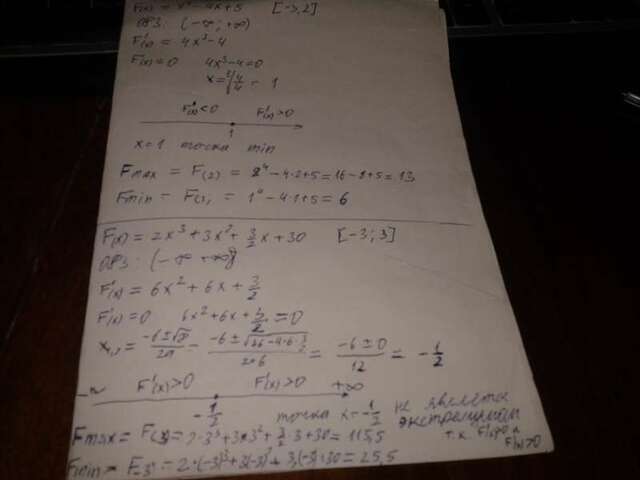 F(x) = x⁴ - 4x + 5 [-3,2]
ОДЗ: (-∞; +∞)
F'(x) = 4x³ - 4
F'(x) = 0 4x³ - 4 = 0
x = ∛4/4 = 1
F'(x) < 0 F'(x) > 0
1
x = 1 точка min
Fmax = F(2) = 2⁴ - 4·2 + 5 = 16 - 8 + 5 = 13
Fmin = F(1) = 1⁴ - 4·1 + 5 = 6
F(x) = 2x³ + 3x² + 3/2 x + 30 [-3; 3]
ОДЗ: (-∞ +∞)
F'(x) = 6x² + 6x + 3/2
F'(x) = 0 6x² + 6x + 3/2 = 0
= -6 ± √36 - 4·6·3/2 / 2·6 = -6 ± 0 / 12 = - 1/2
-∞ F'(x) > 0 F'(x) > 0 +∞
- 1/2 точка x = - 1/2 не является
экстремумом
т.к. F'(x) > 0 и
F'(x) > 0
Fmax = F(3) = 2·3³ + 3·3² + 3/2·3 + 30 = 115,5
Fmin = F(-3) = 2·(-3)³ + 3(-3)² + 30 = 25,5